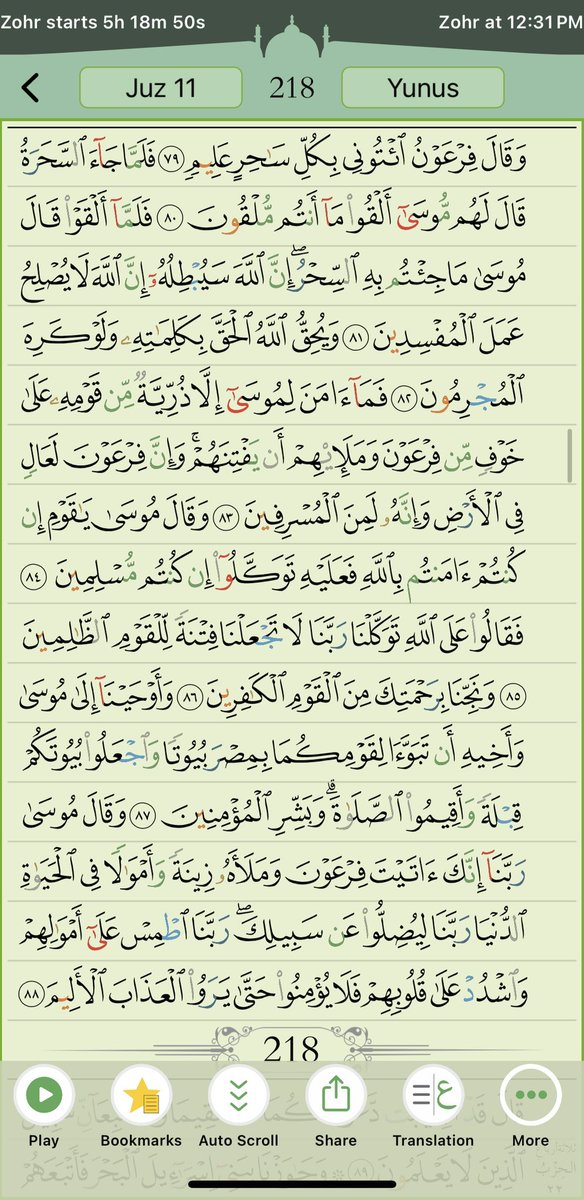 Zohr starts 5h 18m 50s Zohr at 12:31 PM
Juz 11 218 Yunus
وَقَالَ فِرْعَوْنُ ٱئْتُونِى بِكُلِّ سَٰحِرٍ عَلِيمٍ ٧٩ فَلَمَّا جَآءَ ٱلسَّحَرَةُ
قَالَ لَهُم مُّوسَىٰٓ أَلْقُوا۟ مَآ أَنتُم مُّلْقُونَ ٨٠ فَلَمَّآ أَلْقَوْا۟ قَالَ
مُوسَىٰ مَا جِئْتُم بِهِ ٱلسِّحْرُ ۖ إِنَّ ٱللَّهَ سَيُبْطِلُهُۥٓ إِنَّ ٱللَّهَ لَا يُصْلِحُ
عَمَلَ ٱلْمُفْسِدِينَ ٨١ وَيُحِقُّ ٱللَّهُ ٱلْحَقَّ بِكَلِمَٰتِهِۦ وَلَوْ كَرِهَ
ٱلْمُجْرِمُونَ ٨٢ فَمَآ ءَامَنَ لِمُوسَىٰٓ إِلَّا ذُرِّيَّةٌ مِّن قَوْمِهِۦ عَلَىٰ
خَوْفٍ مِّن فِرْعَوْنَ وَمَلَإِي۟هِمْ أَن يَفْتِنَهُمْ ۚ وَإِنَّ فِرْعَوْنَ لَعَالٍ
فِى ٱلْأَرْضِ وَإِنَّهُۥ لَمِنَ ٱلْمُسْرِفِينَ ٨٣ وَقَالَ مُوسَىٰ يَٰقَوْمِ إِن
كُنتُمْ ءَامَنتُم بِٱللَّهِ فَعَلَيْهِ تَوَكَّلُوٓا۟ إِن كُنتُم مُّسْلِمِينَ ٨٤
فَقَالُوا۟ عَلَى ٱللَّهِ تَوَكَّلْنَا رَبَّنَا لَا تَجْعَلْنَا فِتْنَةً لِّلْقَوْمِ ٱلظَّٰلِمِينَ
٨٥ وَنَجِّنَا بِرَحْمَتِكَ مِنَ ٱلْقَوْمِ ٱلْكَٰفِرِينَ ٨٦ وَأَوْحَيْنَآ إِلَىٰ مُوسَىٰ
وَأَخِيهِ أَن تَبَوَّءَا لِقَوْمِكُمَا بِمِصْرَ بُيُوتًا وَٱجْعَلُوا۟ بُيُوتَكُمْ
قِبْلَةً وَأَقِيمُوا۟ ٱلصَّلَوٰةَ ۗ وَبَشِّرِ ٱلْمُؤْمِنِينَ ٨٧ وَقَالَ مُوسَىٰ
رَبَّنَآ إِنَّكَ ءَاتَيْتَ فِرْعَوْنَ وَمَلَأَهُۥ زِينَةً وَأَمْوَٰلًا فِى ٱلْحَيَوٰةِ
ٱلدُّنْيَا رَبَّنَا لِيُضِلُّوا۟ عَن سَبِيلِكَ ۖ رَبَّنَا ٱطْمِسْ عَلَىٰٓ أَمْوَٰلِهِمْ
وَٱشْدُدْ عَلَىٰ قُلُوبِهِمْ فَلَا يُؤْمِنُوا۟ حَتَّىٰ يَرَوُا۟ ٱلْعَذَابَ ٱلْأَلِيمَ ٨٨
218
Play Bookmarks Auto Scroll Share Translation More